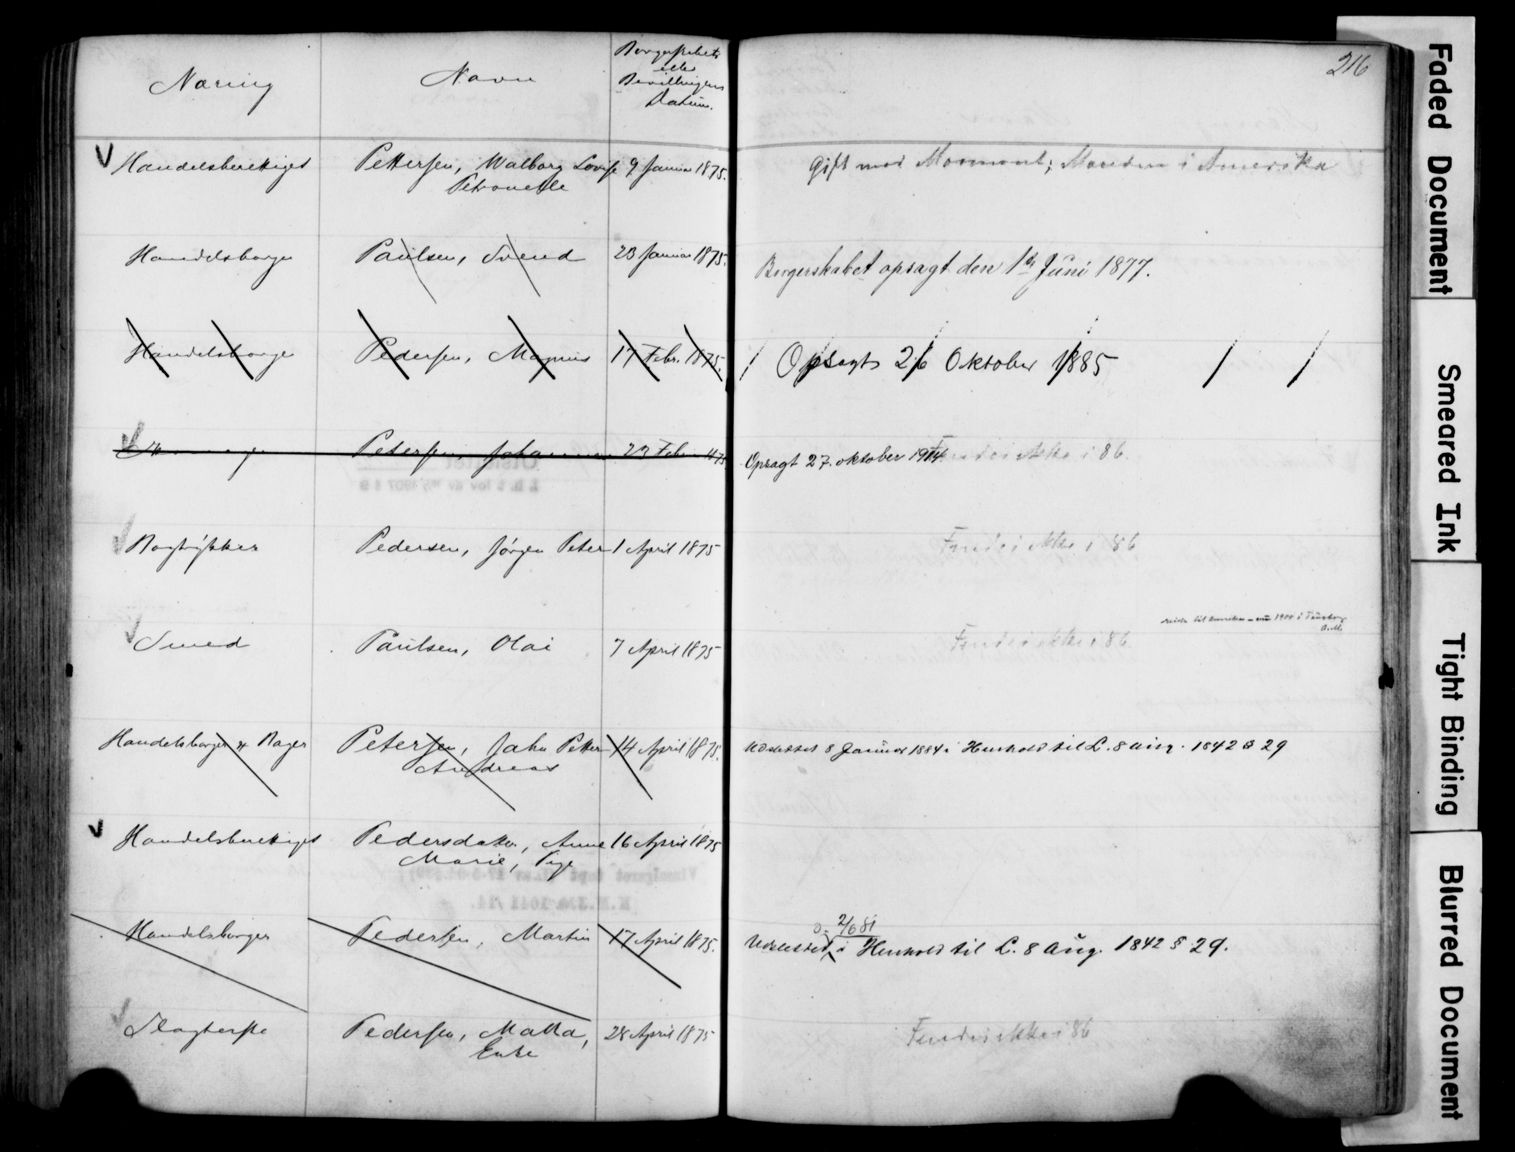 216
Næring
Navn
Borgerskabets
eller
Bevillingens
Datum.
Handelsberettiget Pettersen, Walborg Lovise 9 Januar 1875.
Petronelle
Gift med Mormont; Manden i Amerika
Handelsborger Paulsen, Svend 23 Januar 1875.
Borgerskabet opsagt den 1ste Juni 1877.
Handelsborger Pedersen, Magnus 17 Febr. 1875.
Opsagt 26 Oktober 1885
Petersen, Johan 23 Febr 1875
Opsagt 27. oktober 1914 Findes ikke i 86.
Bogtrykker Pedersen, Jørgen Peter 1 April 1875
Findes ikke i 86
Smed Paulsen, Olai 7 April 1875
Findes ikke i 86
reiste til Amerika - 1900 i Tønsberg
Handelsborger & Bager Petersen, John Petter 14 April 1875.
Andreas
Udslettet 8 Januar 1884 i Henhold til L. 8 aug. 1842 § 29
Handelsberettiget Pedersdatter, Anne 16 April 1875
Marie, Pige
Handelsborger Pedersen, Martin 17 April 1875.
2/6 81
Udslettet i Henhold til L. 8 Aug. 1842 § 29.
Slagterske Pedersen, Matta, 28 April 1875
Enke
Findes ikke i 86
Faded Document
Smeared Ink
Tight Binding
Blurred Document